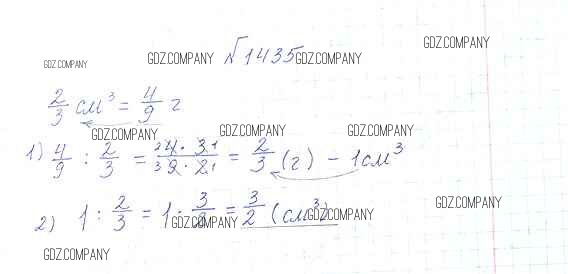 GDZ.COMPANY
№1435
GDZ.COMPANY GDZ.COMPANY
GDZ.COMPANY
2/3 см³ = 4/9 г
GDZ.COMPANY GDZ.COMPANY GDZ.COMPANY
1) 4/9 : 2/3 = 4 · 3/9 · 2 = 2/3 (г) – 1 см³
2) 1 : 2/3 = 1 · 3/2 = 3/2 (см³)
GDZ.COMPANY GDZ.COMPANY GDZ.COMPANY
GDZ.COMPANY